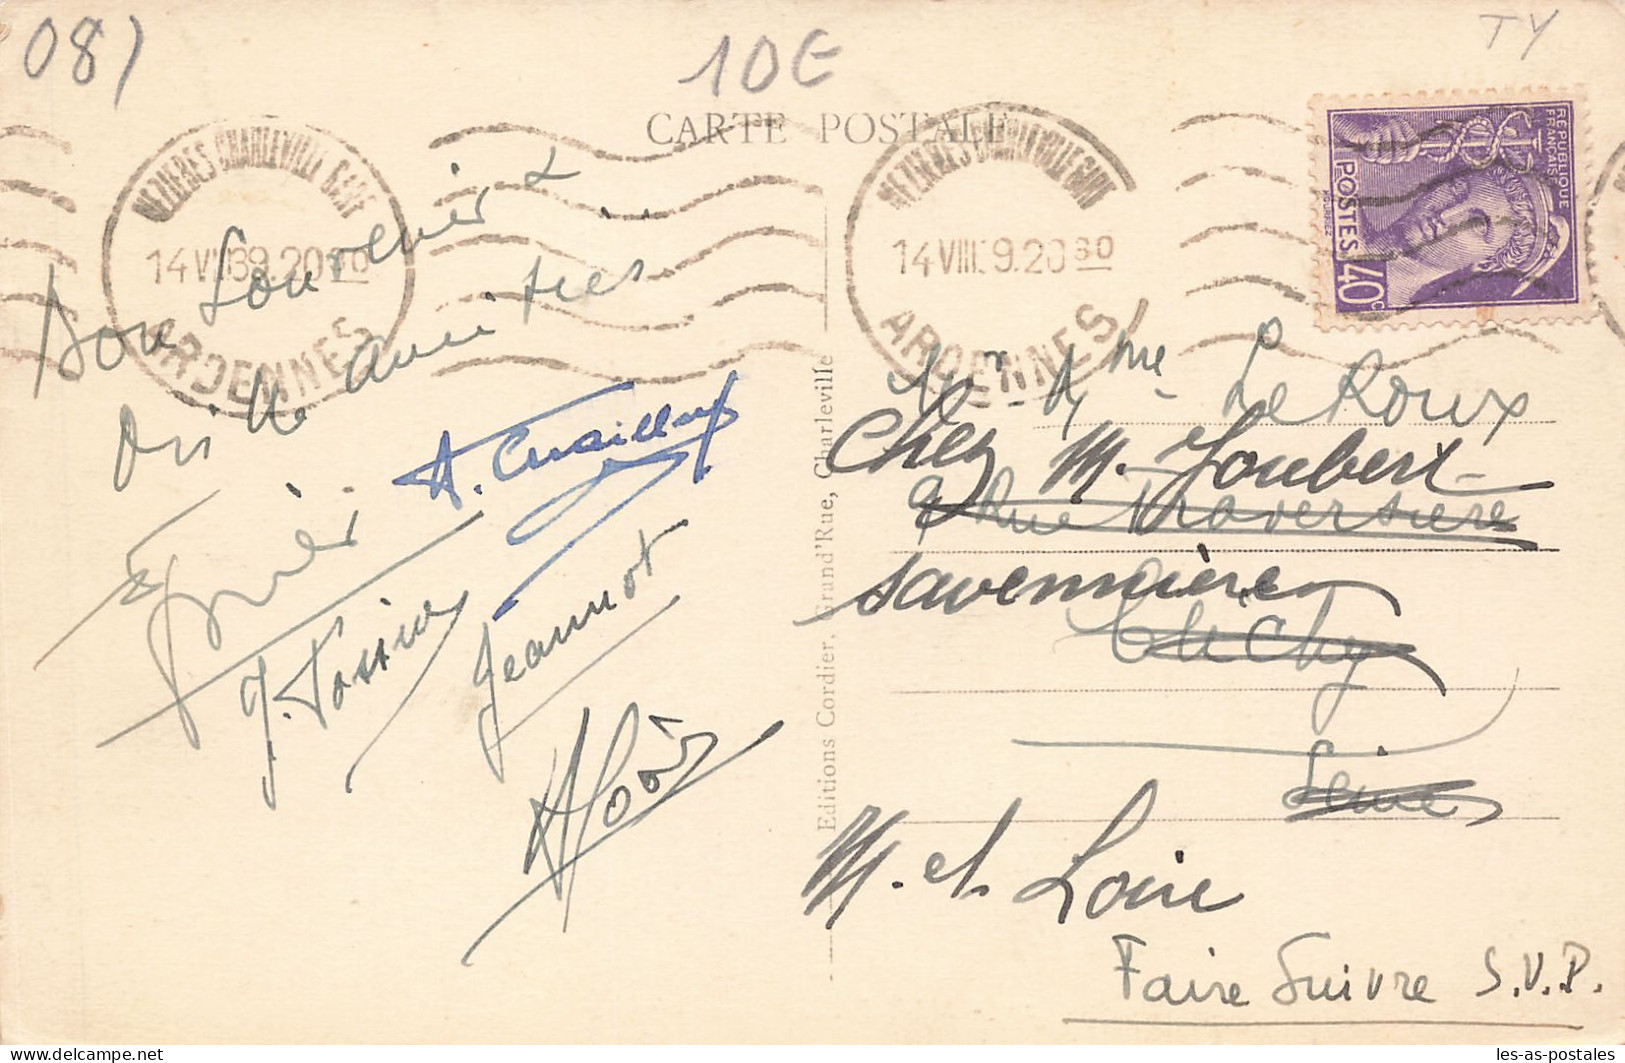 08)
10€
TY
CARTE POSTALE
MEZIERES CHARLEVILLE GARE
14 VIII39.20
ARDENNES
MEZIERES CHARLEVILLE GARE
14 VIII 9.20 30
ARDENNES
REPUBLIQUE
FRANCAISE
POSTES 40c
Bon Souvenir &
Mille amitiés
A.
Jeannot
Editions Cordier, Grand'Rue, Charleville
Mr & Mme Le Roux
Chez M. Joubert
9 Rue Traversière
Savennières
Clichy
Seine
M. et Loire
Faire Suivre S.V.P.
les-as-postales
delcampe.net